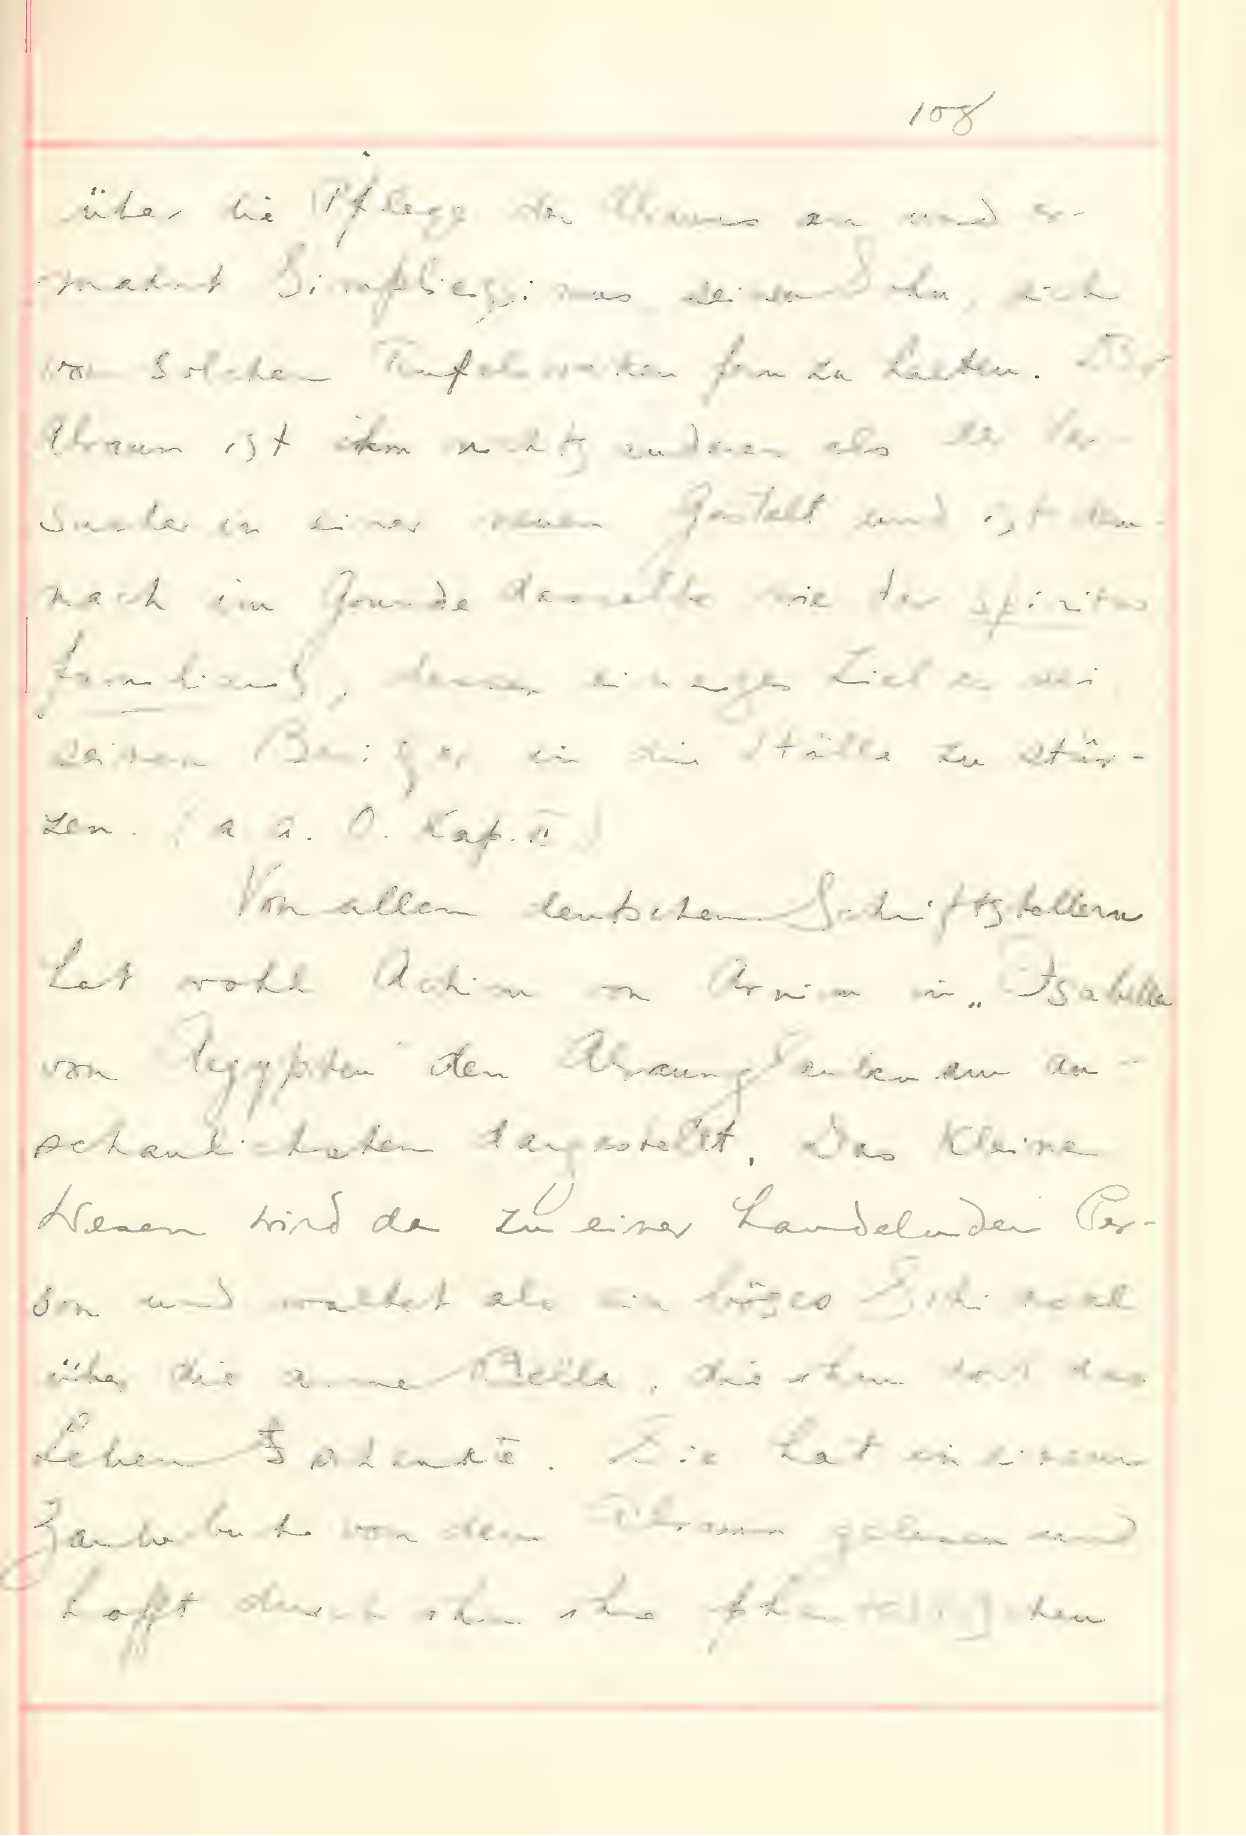 108
über die Pflege des Alrauns an und er-
mahnt Simplicissimus seinen Sohn, sich
von solchen Teufelswerken fern zu halten. Der
Alraun ist ihm nichts anderes als der Ver-
sucher in einer neuen Gestalt und ist dem-
nach im Grunde dasselbe wie der spiritus
familiaris, dessen einziges Ziel es sei
seinen Besitzer in die Hölle zu stür-
zen. (a a. O. Kap. II)
Von allen deutschen Schriftstellern
hat wohl Achim von Arnim in „Isabella
von Ägypten" den Alraunglauben am an-
schaulichsten dargestellt. Das kleine
Wesen wird da zu einer handelnden Per-
son und waltet als ein böses Schicksal
über die arme Bella, die ihm doch das
Leben schenkte. Sie hat in einem
Zauberbuche von dem Alraun gelesen und
hofft durch ihn ihre phantastischen